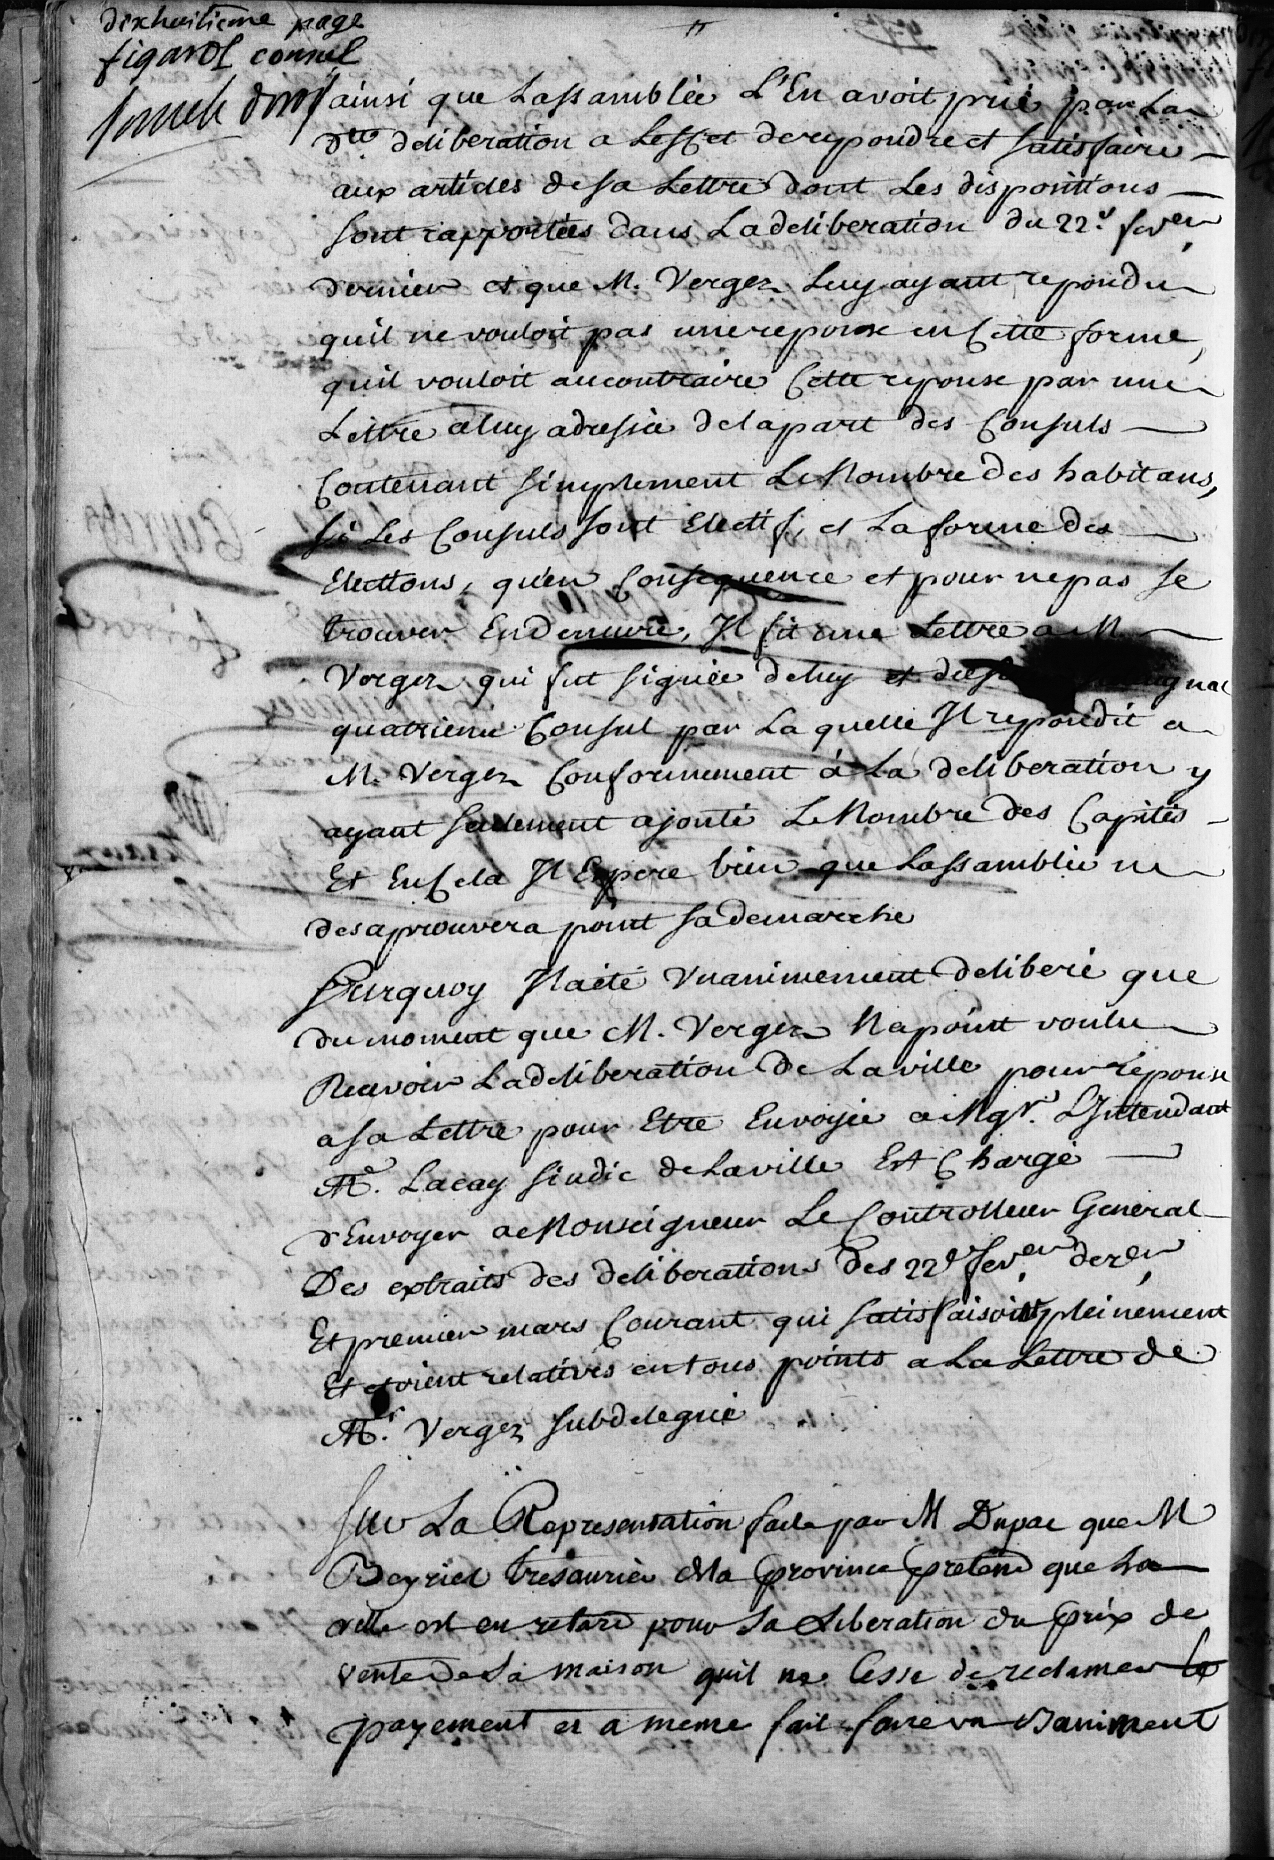 dixhuitieme page
figarol consul
ainsi que Lassamblée L'En avoit prié par La
d.te deliberation a Leffet de repondre et satisfaire
aux articles de sa Lettre dont Les dispositions
sont rapportées dans La deliberation du 22.e fev.er
dernier et que M. Vergez Luy ayant repondu
quil ne vouloit pas une reponse en Cette forme,
quil vouloit au contraire Cette reponse par une
Lettre a luy adressée de la part des Consuls
Contenant simplement Le Nombre des habitans,
si Les Consuls sont Electifs, et La forme des
Elections, qu'en Consequence et pour ne pas se
trouver En demeure, Il fit une Lettre a M.
Vergez qui fut signée de luy et de
quatrieme Consul par La quelle Il repondit a
M. Vergez Conformement á La deliberation y
ayant seulement ajouté Le Nombre des Capités
Et En Cela Il Espere bien que Lassamblée ne
desaprouvera point sa demarche
Surquoy Il a été Unanimement deliberé que
du moment que M. Vergez Na point voulu
Recevoir La deliberation de La ville pour reponse
a sa Lettre pour Etre Envoyée a Mgr. L'Intendant
M.e Lacay sindic de La ville Est Chargé
d'Envoyer a Monseigneur Le Controlleur General
Des extraits des deliberations des 22.e fev.er der.er
Et premier mars Courant qui satisfaisoit pleinement
Et etoient relatives en tous points a La Lettre de
M.r Vergez subdelegué
Sur La Representation faite par M Dupac que M
Beyriet tresaurier de la province pretend que La
ville est en retard pour La Liberation du prix de
vente de La maison quil ne Cesse de reclamer le
payement et a meme fait faire un Baniment